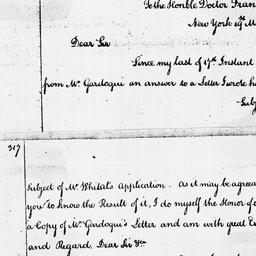 To the Honble Doctor Fran
New York 19th M
Dear Sir
Since my last of 17th Instant
from Mr. Gardoqui an answer to a Letter I wrote h
Subj
317
subject of Mr Whital's application. As it may be agrea
you to know the Result of it, I do myself the Honor of
a Copy of Mr Gardoqui's Letter and am with great Es
and Regard, Dear Sir &ca